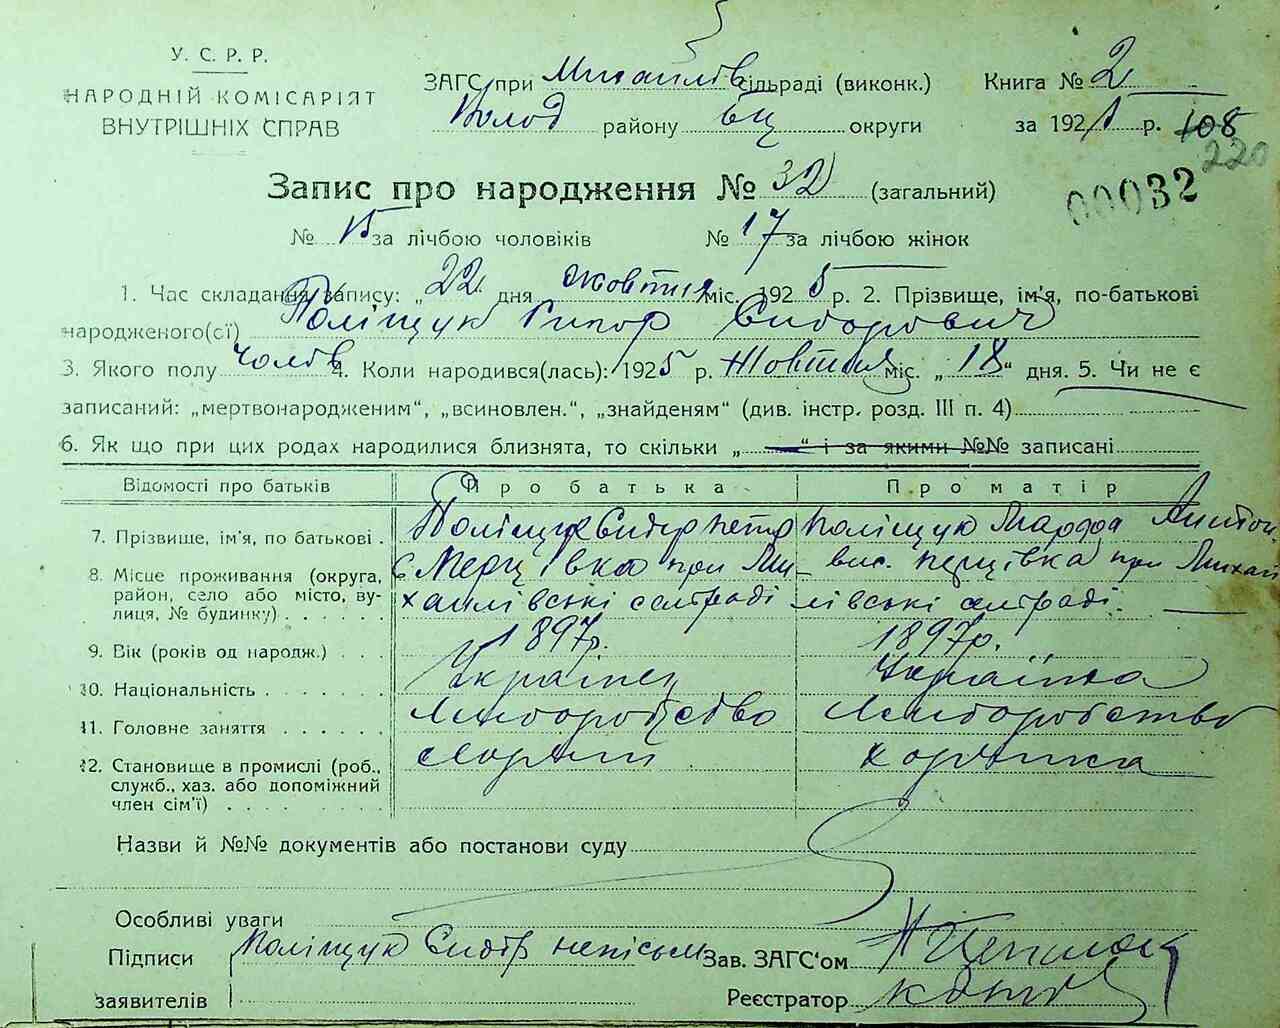 У. С. Р. Р.
НАРОДНІЙ КОМІСАРІЯТ
ВНУТРІШНІХ СПРАВ
ЗАГС при Михайлів сільраді (виконк.) Книга № 2
Волод району БЦ округи за 1925 р. 108
220
Запис про народження № 32 (загальний)
00032
№ 15 за лічбою чоловіків № 17 за лічбою жінок
1. Час складання запису: „22 дня жовтня міс. 1925 р. 2. Прізвище, ім'я, по-батькові
народженого(сї) Поліщук Сидорович
3. Якого полу чолов 4. Коли народився(лась): 1925 р. Жовтня міс. „18“ дня. 5. Чи не є
записаний: „мертвонародженим“, „всиновлен.“, „знайденям“ (див. інстр. розд. III п. 4)
6. Як що при цих родах народилися близнята, то скільки „ “ і за якими №№ записані
Відомості про батьків Про батька Про матір
7. Прізвище, ім'я, по батькові . Поліщук Сидір Петр Поліщук Марфа Антон
8. Місце проживання (округа, район, село або місто, вулиця, № будинку) с Перцівка при Михайлівські селраді вис. Перцівка при Михайлівські селраді.
9. Вік (років од народж.) . . . 1897р. 1897р.
10. Національність . . . . . . . Українец Українка
11. Головне заняття . . . . . . хліборобство хліборобство
12. Становище в промислі (роб., служб., хаз. або допоміжний член сім'ї) . . . . . . . .
Назви й №№ документів або постанови суду
Особливі уваги
Підписи Поліщук Сидір непісьм Зав. ЗАГС'ом
заявителів Реєстратор